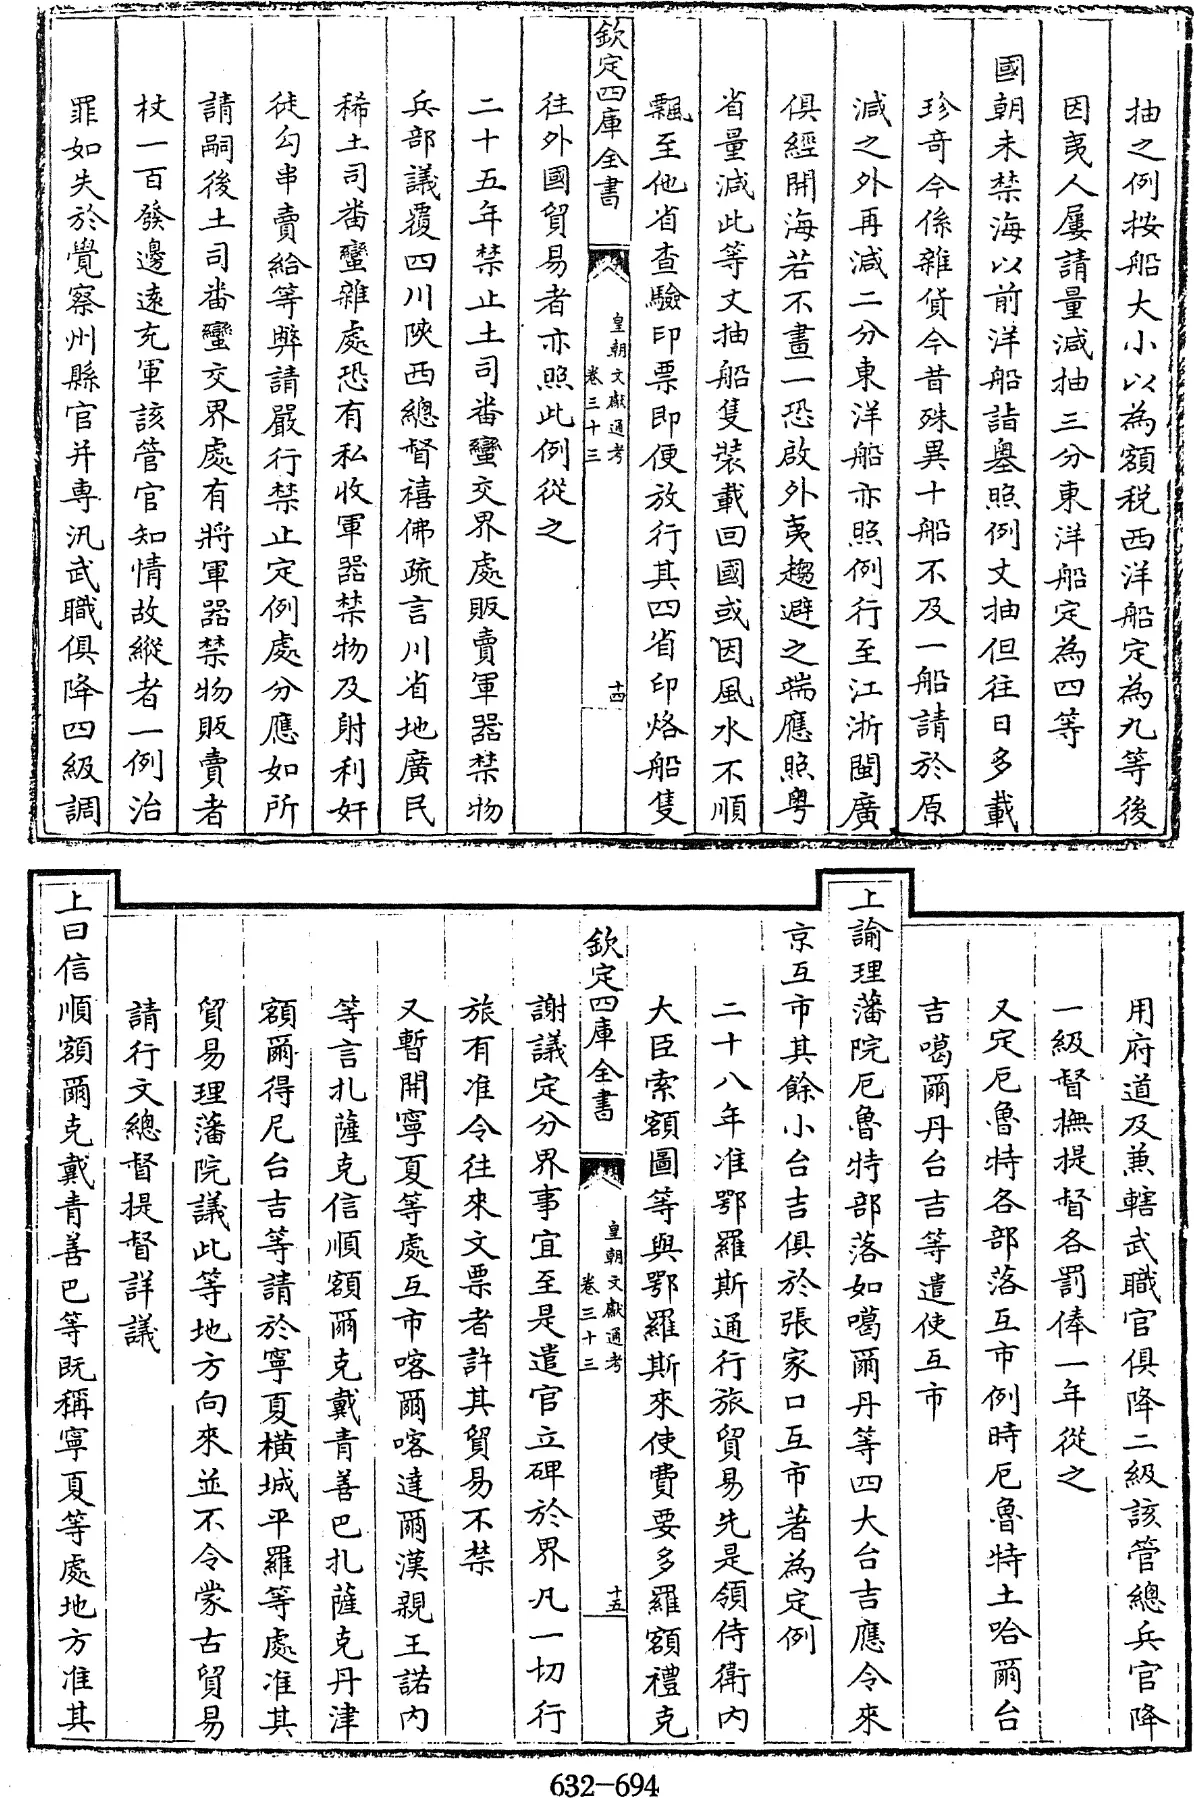 抽之例按船大小以為額税西洋船定為九等後
因夷人屢請量減抽三分東洋船定為四等
國朝未禁海以前洋船詣㠗照例丈抽但往日多載
珍奇今係雜貨今昔殊異十船不及一船請於原
減之外再減二分東洋船亦照例行至江浙閩廣
俱經開海若不畫一恐啟外夷趨避之端應照粤
省量減此等丈抽船隻裝載回國或因風水不順
飄至他省查驗印票即便放行其四省印烙船隻
欽定四庫全書
皇朝文獻通考
卷三十三
十四
往外國貿易者亦照此例從之
二十五年禁止土司畨蠻交界處販賣軍器禁物
兵部議覆四川陜西總督禧佛疏言川省地廣民
稀土司畨蠻雜處恐有私收軍器禁物及射利奸
徒勾串賣給等弊請嚴行禁止定例處分應如所
請嗣後土司畨蠻交界處有將軍器禁物販賣者
杖一百發邊遠充軍該管官知情故縱者一例治
罪如失於覺察州縣官并専汛武職俱降四級調
用府道及兼轄武職官俱降二級該管總兵官降
一級督撫提督各罰俸一年從之
又定厄魯特各部落互市例時厄魯特土哈爾台
吉噶爾丹台吉等遣使互市
上諭理藩院厄魯特部落如噶爾丹等四大台吉應令來
京互市其餘小台吉俱於張家口互市著為定例
二十八年准鄂羅斯通行旅貿易先是領侍衛内
大臣索額圖等與鄂羅斯來使費要多羅額禮克
欽定四庫全書
皇朝文獻通考
卷三十三
十五
謝議定分界事宜至是遣官立碑於界凡一切行
旅有准令往來文票者許其貿易不禁
又暫開寧夏等處互市喀爾喀達爾漢親王諾内
等言扎薩克信順額爾克戴青善巴扎薩克丹津
額爾得尼台吉等請於寧夏橫城平羅等處准其
貿易理藩院議此等地方向來並不令䝉古貿易
請行文總督提督詳議
上曰信順額爾克戴青善巴等既稱寧夏等處地方准其
632-694